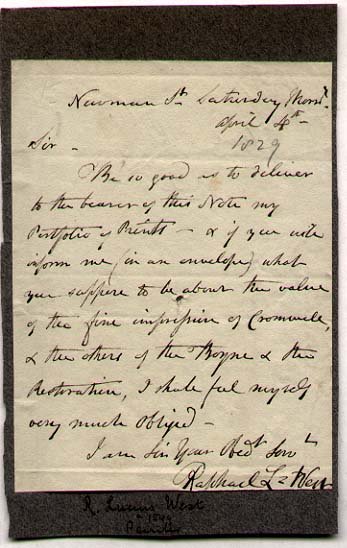 Newman St. Saturday Morng.
April 4th -
1829
Sir -
Be so good as to deliver
to the bearer of this Note my
Portfolio of Prints - & if you will
inform me (in an envelope) what
you suppose to be about the value
of the fine impression of Cromwell,
& the others of the Boyne & the
Restoration, I shall feel myself
very much obliged -
I am Sir Your Obedt Servt
Raphael Lr West
R. Lucius West
Painter